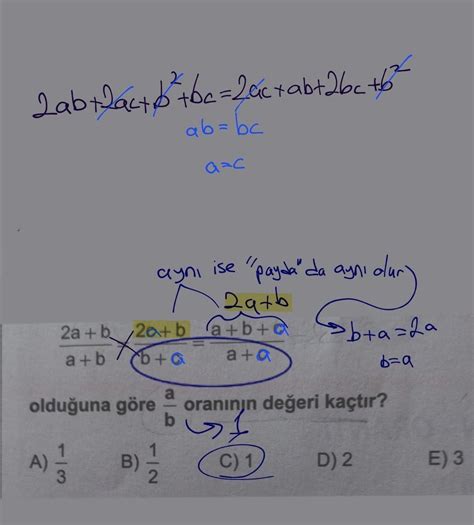 2ab+2ac+b²+bc=2ac+ab+2bc+b²
ab=bc
a=c
aynı ise "payda"da aynı olur
2a+b
2a+b/a+b = 2a+b/b+a = a+b+a/a+a
b+a=2a
b=a
olduğuna göre a/b oranının değeri kaçtır?
1
A) 1/3 B) 1/2 C) 1 D) 2 E) 3